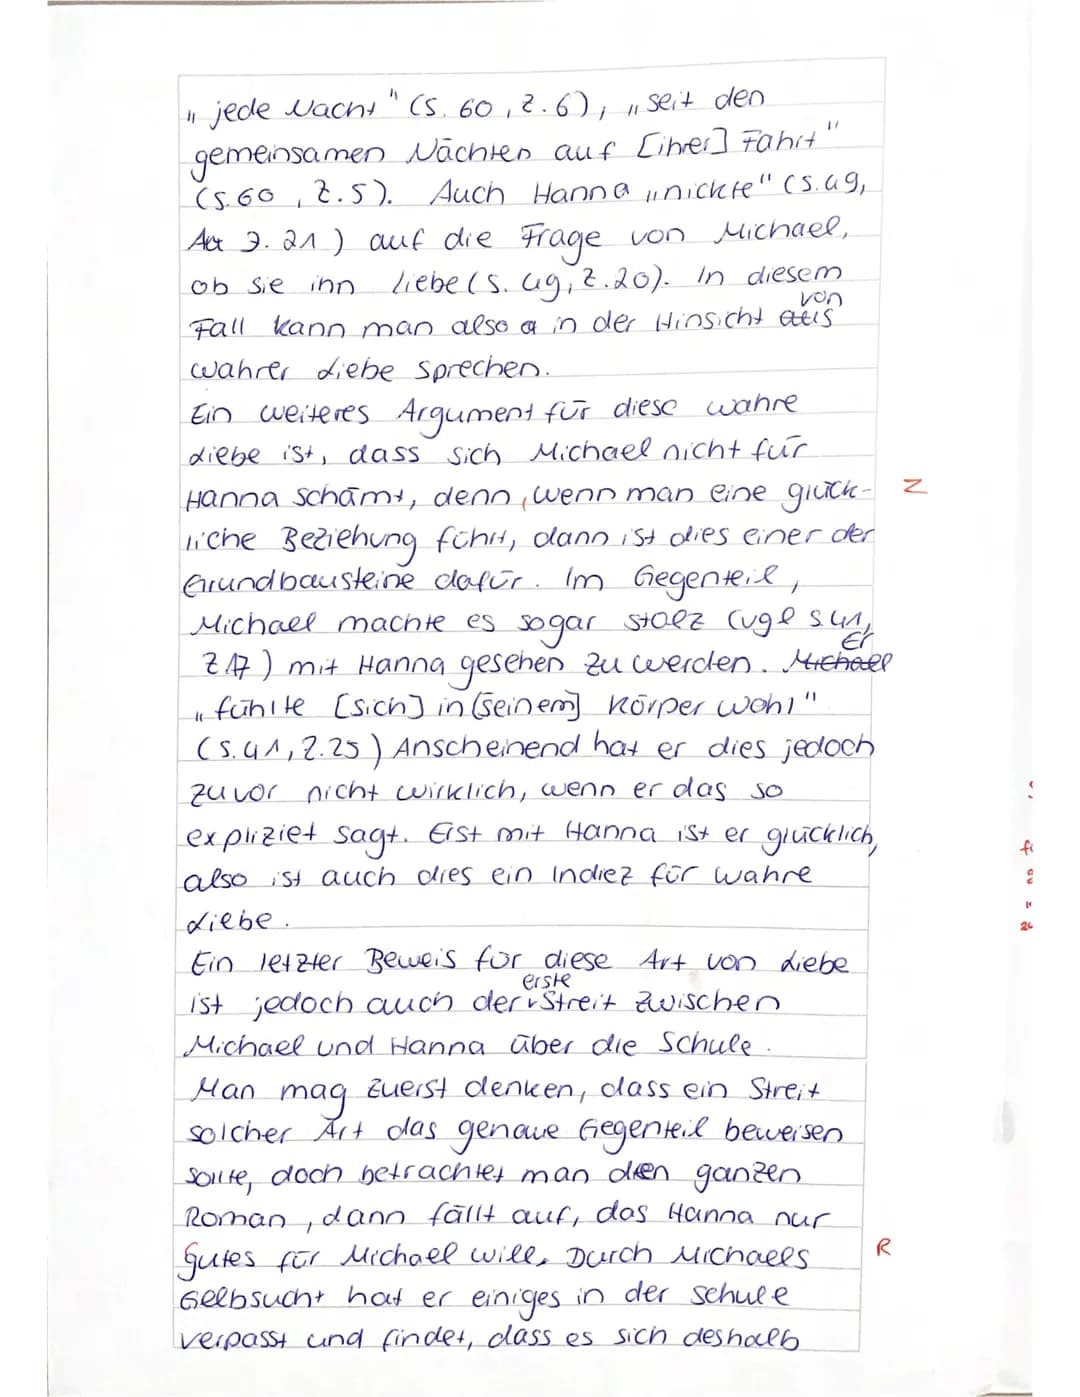 „jede Nacht" (S. 60, Z. 6), „seit den
gemeinsamen Nächten auf [ihrer] Fahrt"
(S. 60, Z. 5). Auch Hanna „nickte" (S. 49,
Z. 21) auf die Frage von Michael,
ob sie ihn liebe (S. 49, Z. 20). In diesem
Fall kann man also in der Hinsicht von
wahrer Liebe sprechen.
Ein weiteres Argument für diese wahre
Liebe ist, dass sich Michael nicht für
Hanna schämt, denn, wenn man eine glück- Z
liche Beziehung führt, dann ist dies einer der
Grundbausteine dafür. Im Gegenteil,
Michael machte es sogar stolz (vgl S. 41,
Z. 17) mit Hanna gesehen zu werden. Er
„fühlte [sich] in [seinem] Körper wohl"
(S. 41, Z. 25) Anscheinend hat er dies jedoch
zuvor nicht wirklich, wenn er das so
expliziet sagt. Erst mit Hanna ist er glücklich,
also ist auch dies ein Indiez für wahre
Liebe.
Ein letzter Beweis für diese Art von Liebe
ist jedoch auch der erste Streit zwischen
Michael und Hanna über die Schule.
Man mag zuerst denken, dass ein Streit
solcher Art das genaue Gegenteil beweisen
sollte, doch betrachtet man den ganzen
Roman, dann fällt auf, das Hanna nur
gutes für Michael will. Durch Michaels R
Gelbsucht hat er einiges in der Schule
verpasst und findet, dass es sich deshalb